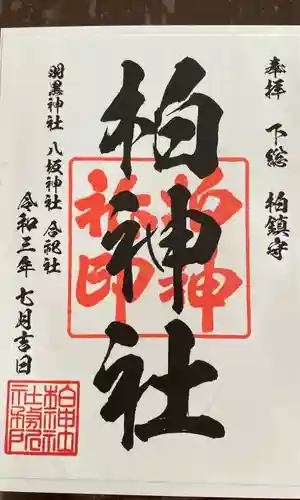 奉拝 下総 柏鎮守
柏神社
柏神
社印
羽黒神社 八坂神社 合祀社
令和三年 七月吉日